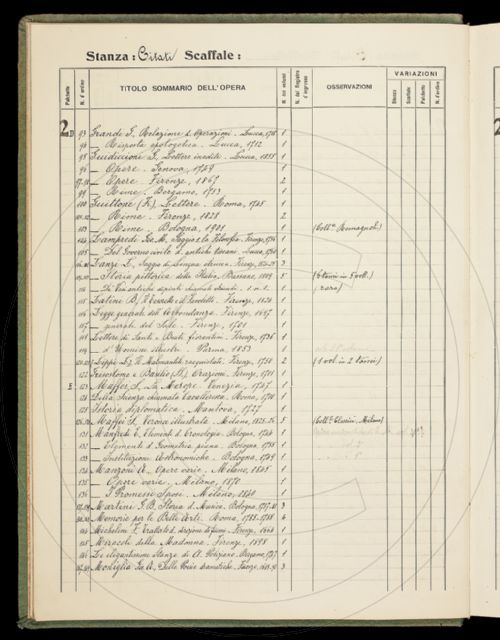 Stanza: Citati Scaffale:
Palchetto N. d'ordine TITOLO SOMMARIO DELL'OPERA N. dei volumi N. del Registro d'ingresso OSSERVAZIONI VARIAZIONI
Stanza Scaffale Palchetto N. d'ordine
2D
93 Grandi G. Relazione d. Operazioni. Lucca, 1
94 — Risposta apologetica. Lucca, 1712 1
95 Guidiccioni G. Lettere inedite. Lucca, 1855 1
96 — Opere. Genova, 1749 1
97-98 — Opere. Firenze, 1867 2
99 — Rime. Bergamo, 1753 1
100 Guittone (Fr.) Lettere. Roma, 1745 1
101-102 — Rime. Firenze, 1828 2
103 — Rime. Bologna, 1901 1 (Coll. Romagnoli)
104 Lampredi Saggio s. la Filosofia. Firenze, 1
105 — Del Governo civile d. antichi toscani. Lucca, 1760 1
Lanzi L. Saggio di Lingua etrusca. Firenze, 3
— Storia pittorica della Italia, Bassano, 1809 5 (6 tomi in 5 voll.)
1 (raro)
115 Latini B. Il Tesoro e il Tesoretto. Firenze, 1824 1
116 Legge generale dell'Abbondanza. Firenze, 1697 1
117 — generale del Sale. Firenze, 1701 1
118 Lettere di Santi e Beati fiorentini. Firenze, 1736 1
119 — d'Uomini illustri. Parma, 1853 1
120-121 Lippi L. Il Malmantile racquistato. Firenze, 1750 2 (1 vol. in 2 tomi)
122 Grisostomo e Basilio (S.) Orazioni. Firenze, 1
E 123 Maffei S. La Merope. Venezia, 1747 1
124 Della Scienza chiamata Cavalleresca. Roma, 1710 1
125 Istoria diplomatica. Mantova, 1727 1
Maffei S. Verona illustrata. Milano, 1825-26 5 (Coll. Classici, Milano)
131 Manfredi E. Elementi d. Cronologia. Bologna, 1744 1
132 — Elementi d. Geometria piana. Bologna, 1755 1
133 — Instituzioni Astronomiche. Bologna, 1749 1
134 Manzoni A. Opere varie. Milano, 1845 1
135 — Opere varie. Milano, 1870 1
136 — I Promessi Sposi. Milano, 1840 1
137-39 Martini G. B. Storia d. Musica. Bologna, 3
Memorie per le Belle Arti. Roma, 1785-1788 4
144 Michelini F. Trattato d. direzione de' fiumi. Firenze, 1664 1
145 Miracoli della Madonna. Firenze, 1898 1
146 Le elegantissime Stanze di A. Poliziano. Bergamo, 1747 1
Moniglia Gio. A. Delle Poesie dramatiche. Firenze, 3